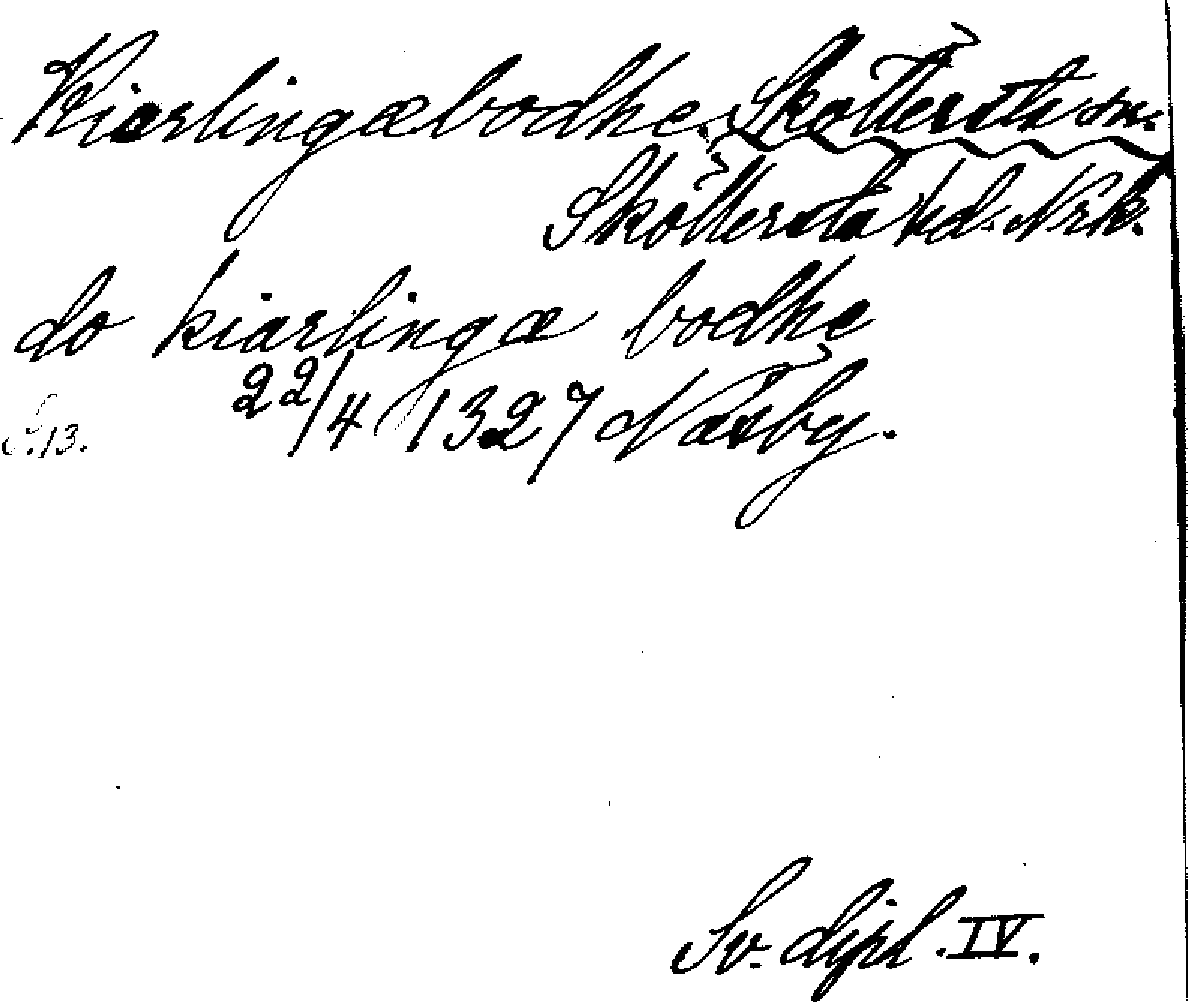 Kiærlingæbodhe. Sköllersta sn.
Sköllersta hd. Nrk.
do kiærlingæ bodhe
22/4 1327 Näsby.
S. 13.
Sv. dipl. IV.